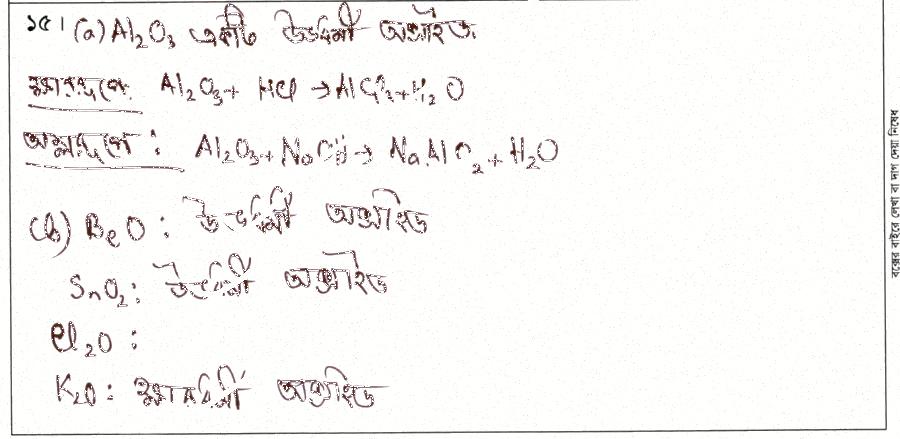 ১৫। (a) Al₂O₃ একটি উভধর্মী অক্সাইড.
ক্ষাররূপে: Al₂O₃ + HCl → AlCl₃ + H₂O
অম্লরূপে: Al₂O₃ + NaOH → NaAlO₂ + H₂O
(b) BeO : উভধর্মী অক্সাইড
SnO₂ : উভধর্মী অক্সাইড
Cl₂O :
K₂O : ক্ষারধর্মী অক্সাইড
বক্সের বাইরে লেখা বা দাগ দেয়া নিষেধ